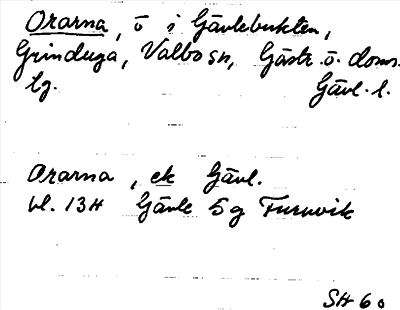 Orarna, ö i Gävlebukten,
Grinduga, Valbo sn, Gästr. ö. doms.
lg. Gävl. l.
Orarna, ek Gävl.
bl. 13H Gävle 5g Furuvik
SH 60